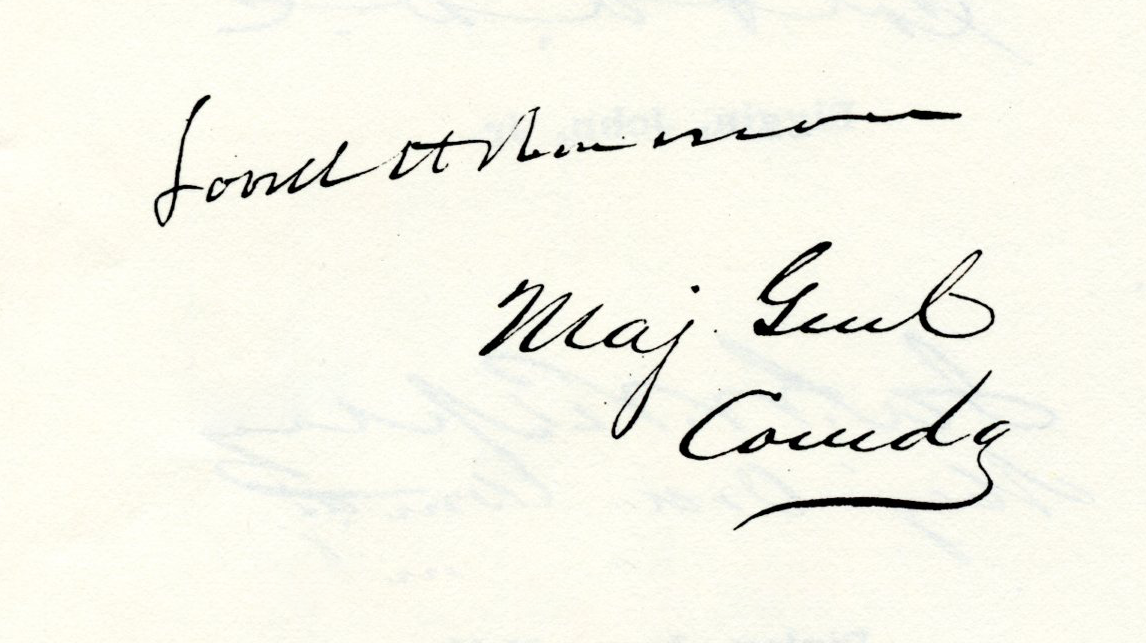 Lovell H Rousseau
Maj Genl
Comdg